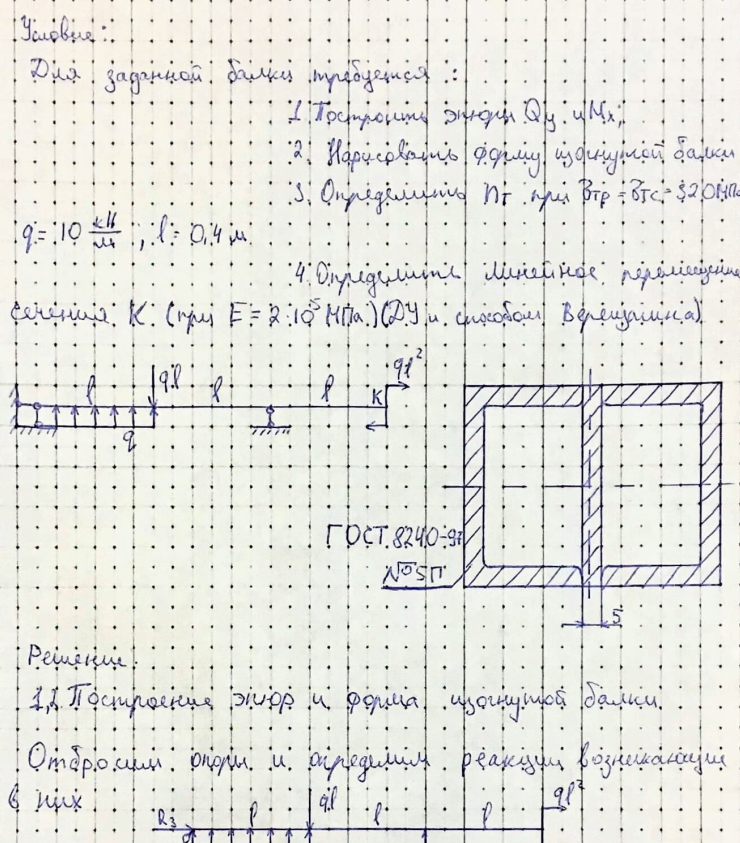 Условие:
Для заданной балки требуется:
1. Построить эпюры Qy и Mx;
2. Нарисовать форму изогнутой балки
3. Определить nт при σтр = σтс = 320 МПа
q = 10 кН/м ; l = 0,4 м
4. Определить линейное перемещение
сечения K (при E = 2·10⁵ МПа) (ДУ и способом Верещагина)
l ql l l K ql²
q
ГОСТ 8240-97
№5П
5
Решение.
1,2 Построение эпюр и форма изогнутой балки.
Отбросим опоры и определим реакции возникающие
в них
R₃ l ql l l ql²